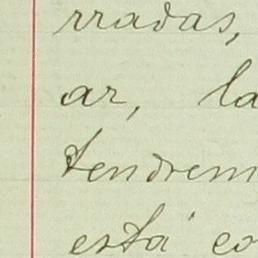 rradas,
ar, la
tendrem
está co